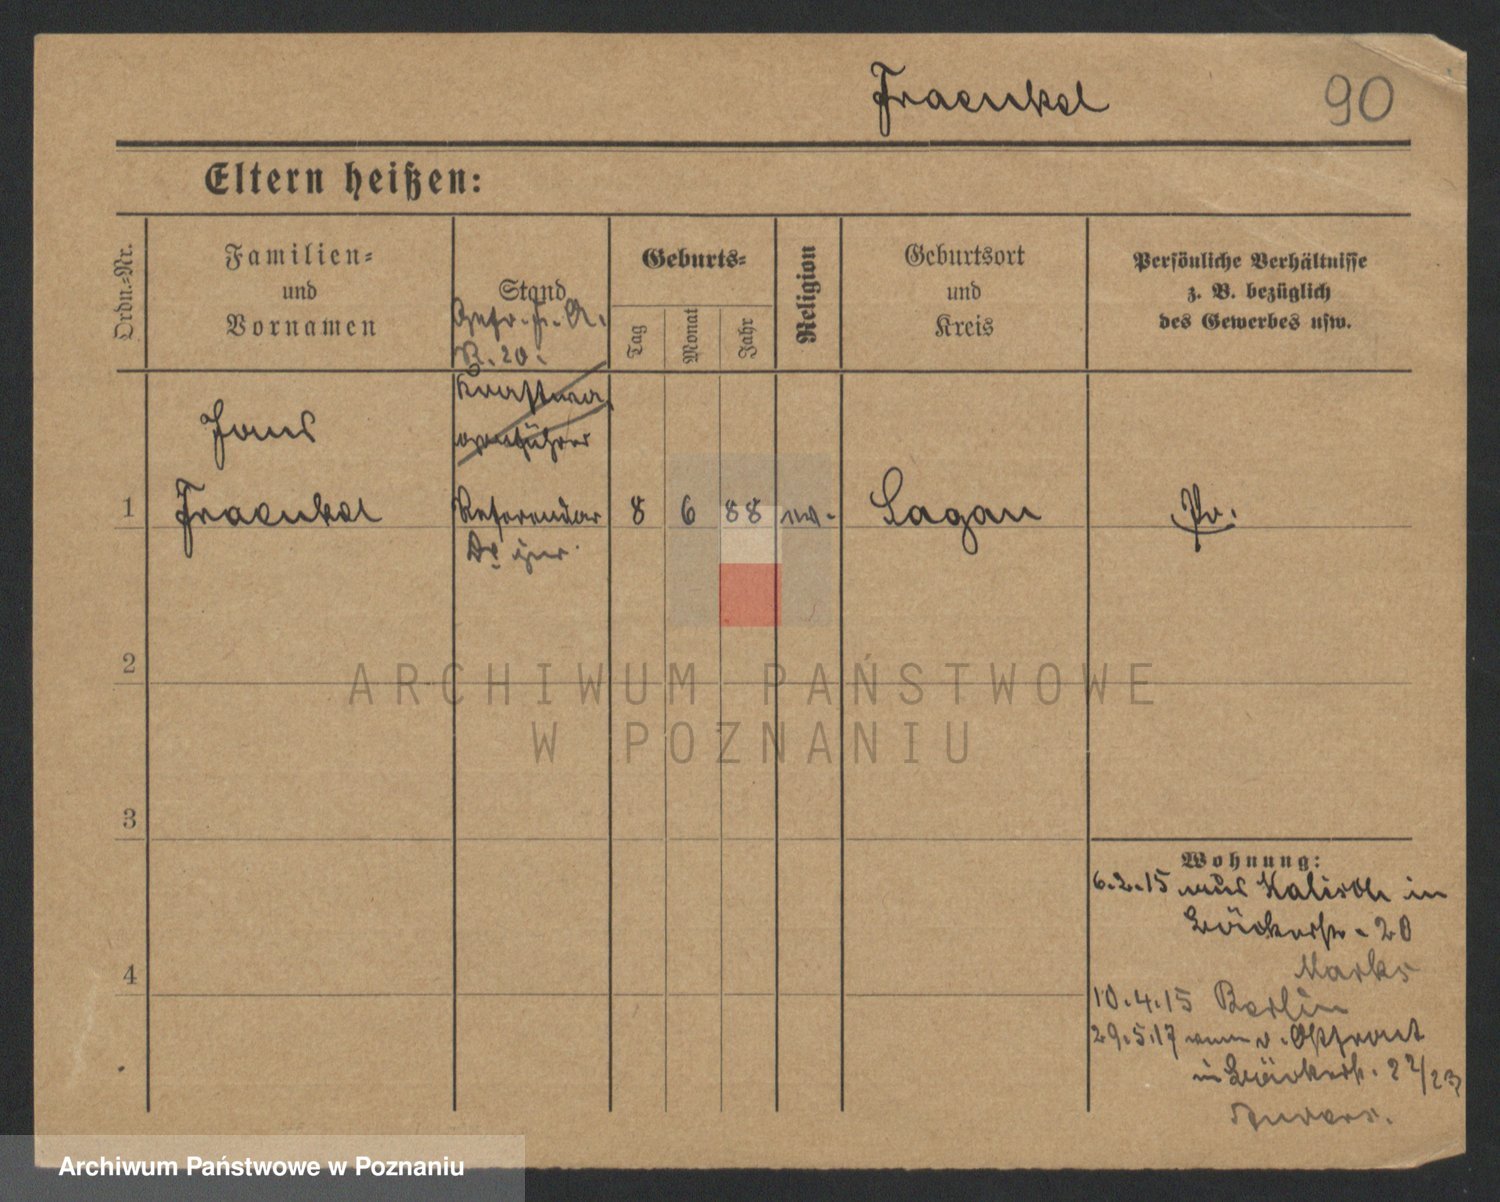 Fraenkel 90
Eltern heißen:
Ordn.-Nr.
Familien-
und
Vornamen
Stand
Gefr. F. A.
B. 20.
Geburts-
Tag
Monat
Jahr
Religion
Geburtsort
und
Kreis
Persönliche Verhältnisse
z. B. bezüglich
des Gewerbes usw.
Kraftwa
genführer
Hans
1 Fraenkel Referendar 8 6 88 ev. Sagan Pr.
Dr jur.
2
ARCHIWUM PAŃSTWOWE
W POZNANIU
3
Wohnung:
6.2.15 aus Kalisch in
Bäckerstr. 20
Marks
4
10.4.15 Berlin
29.5.17 v. Ostfront
in Bäckerstr. 22/23
Archiwum Państwowe w Poznaniu